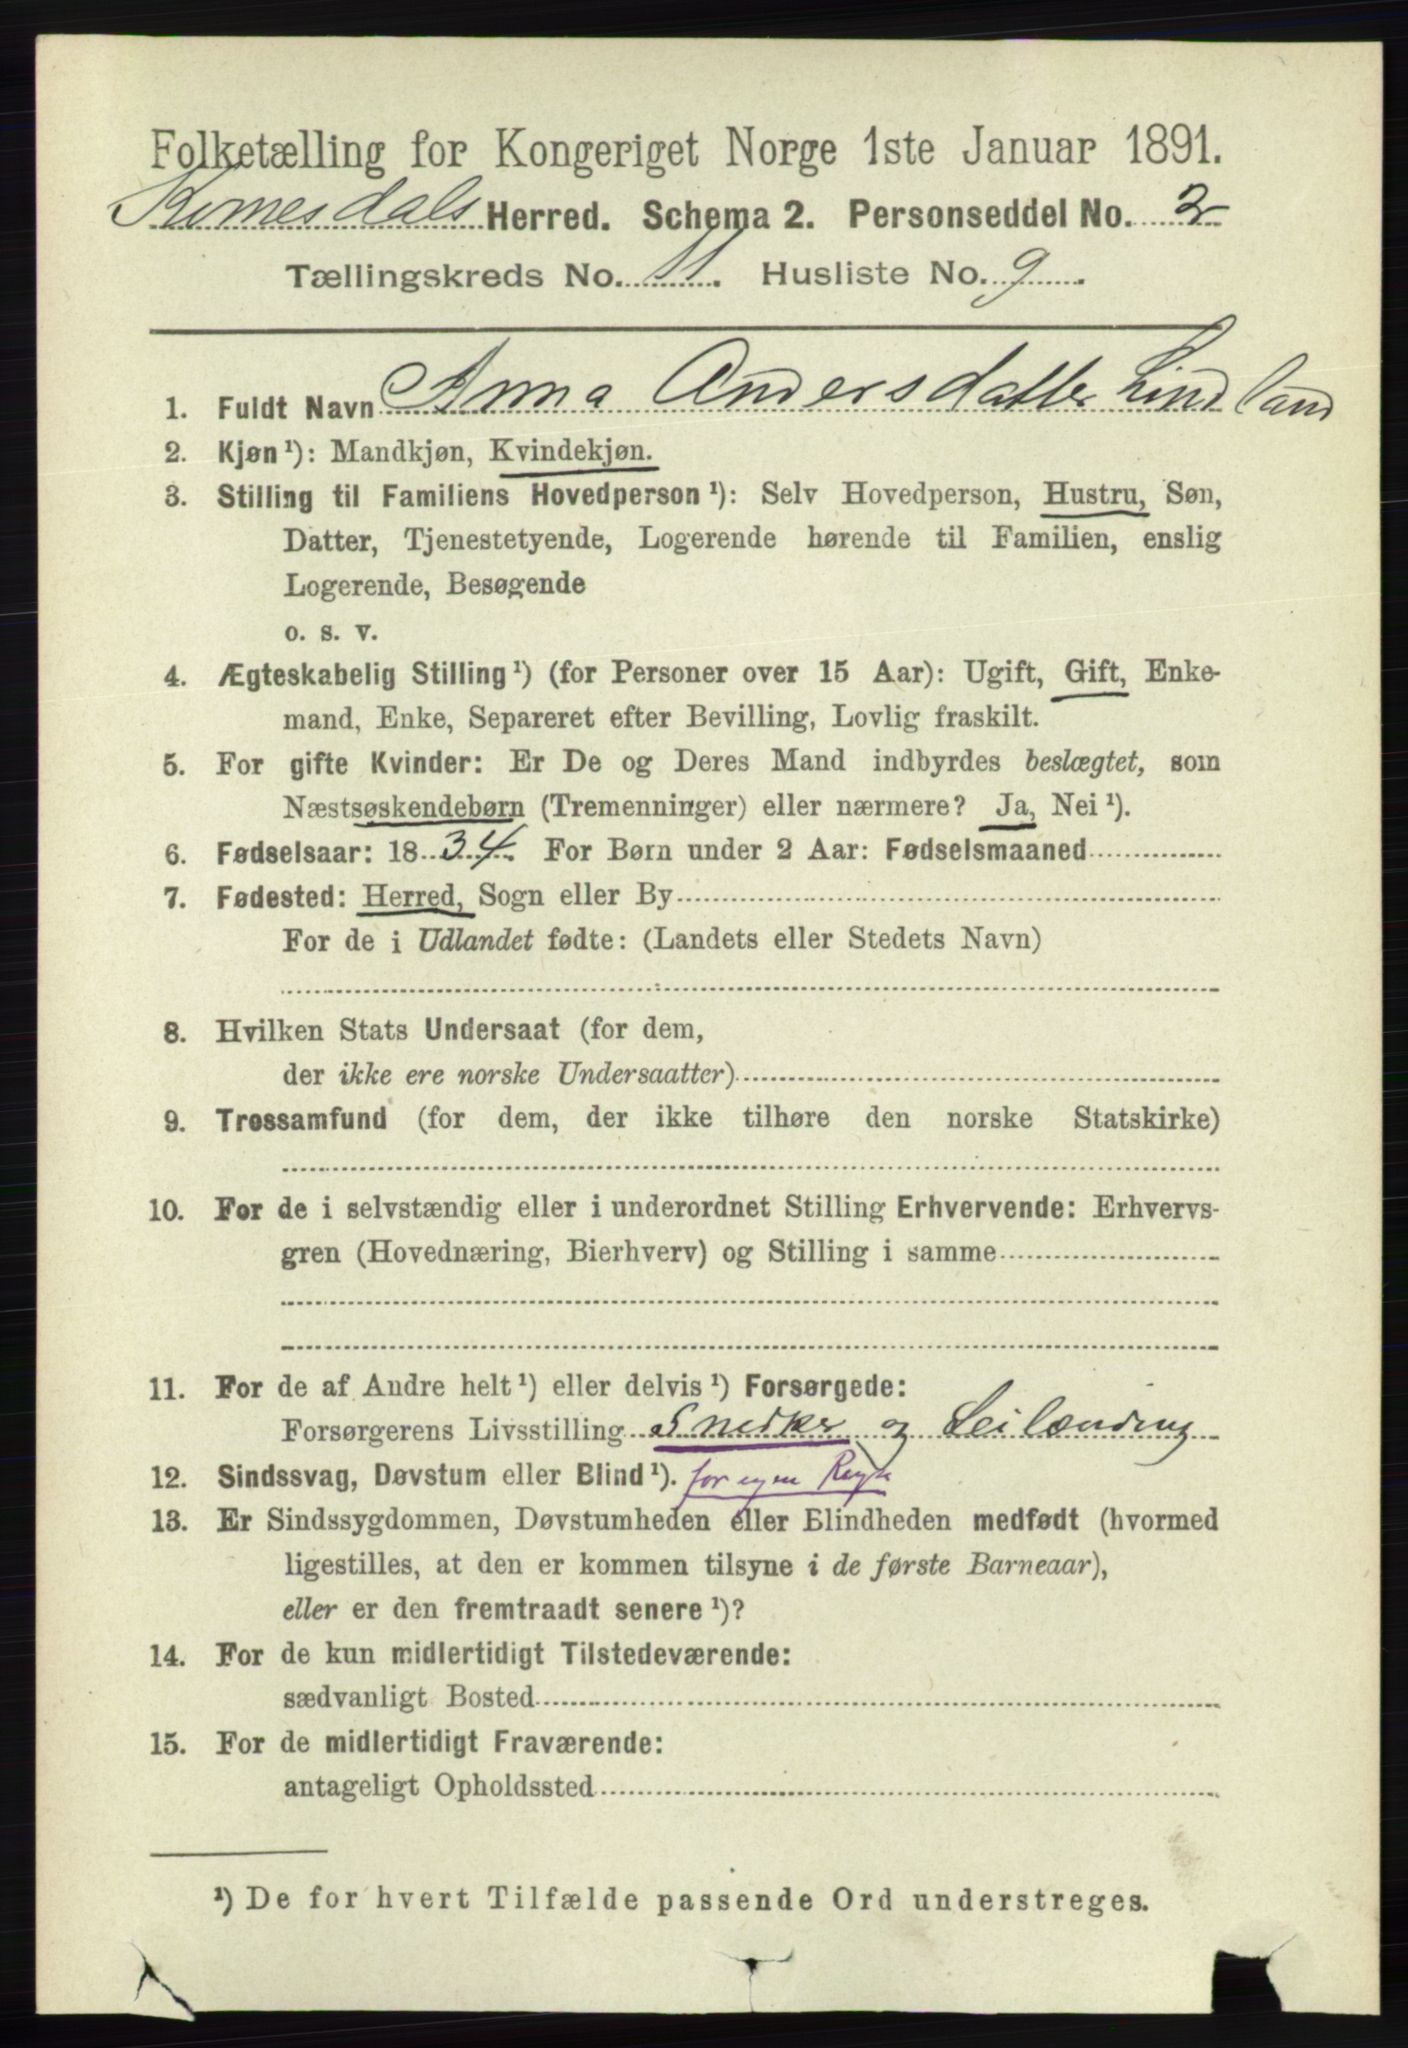 Folketælling for Kongeriget Norge 1ste Januar 1891.
Kvinesdals Herred. Schema 2. Personseddel No. 2
Tællingskreds No. 11. Husliste No. 9.
1. Fuldt Navn Anna Andersdatter Lindland
2. Kjøn ¹): Mandkjøn, Kvindekjøn.
3. Stilling til Familiens Hovedperson ¹): Selv Hovedperson, Hustru, Søn,
Datter, Tjenestetyende, Logerende hørende til Familien, enslig
Logerende, Besøgende
o. s. v.
4. Ægteskabelig Stilling ¹) (for Personer over 15 Aar): Ugift, Gift, Enke-
mand, Enke, Separeret efter Bevilling, Lovlig fraskilt.
5. For gifte Kvinder: Er De og Deres Mand indbyrdes beslægtet, som
Næstsøskendebørn (Tremenninger) eller nærmere? Ja, Nei ¹).
6. Fødselsaar: 1834. For Børn under 2 Aar: Fødselsmaaned
7. Fødested: Herred, Sogn eller By
For de i Udlandet fødte: (Landets eller Stedets Navn)
8. Hvilken Stats Undersaat (for dem,
der ikke ere norske Undersaatter)
9. Trossamfund (for dem, der ikke tilhøre den norske Statskirke)
10. For de i selvstændig eller i underordnet Stilling Erhvervende: Erhvervs-
gren (Hovednæring, Bierhverv) og Stilling i samme
11. For de af Andre helt ¹) eller delvis ¹) Forsørgede:
Forsørgerens Livsstilling Snedker og Leilænding
12. Sindssvag, Døvstum eller Blind ¹). for egen Regn
13. Er Sindssygdommen, Døvstumheden eller Blindheden medfødt (hvormed
ligestilles, at den er kommen tilsyne i de første Barneaar),
eller er den fremtraadt senere ¹)?
14. For de kun midlertidigt Tilstedeværende:
sædvanligt Bosted
15. For de midlertidigt Fraværende:
antageligt Opholdssted
¹) De for hvert Tilfælde passende Ord understreges.